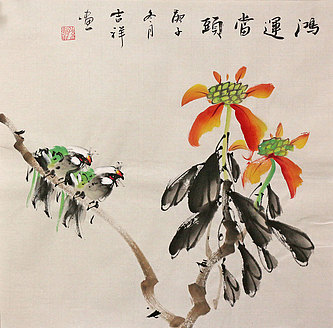 鴻運當頭
冬月
吉祥
畫